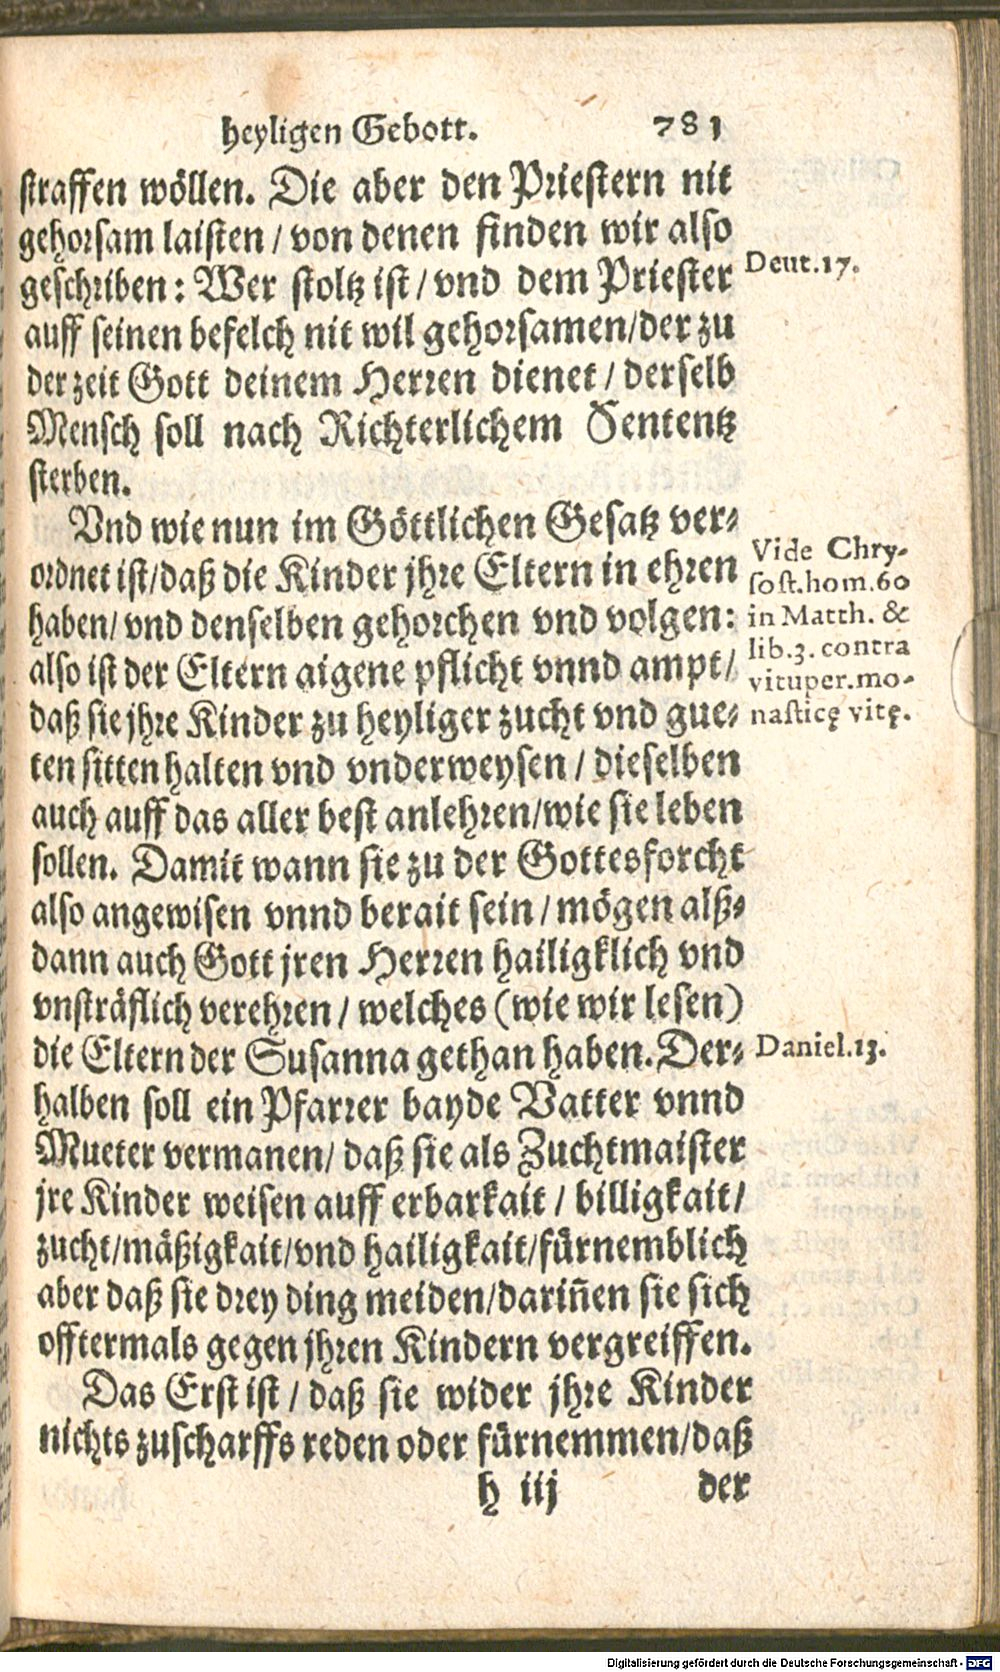 heyligen Gebott. 781
straffen wöllen. Die aber den Priestern nit
gehorsam laisten / von denen finden wir also
geschriben: Wer stoltz ist / vnd dem Priester
Deut.17.
auff seinen befelch nit wil gehorsamen/der zu
der zeit Gott deinem Herren dienet / derselb
Mensch soll nach Richterlichem Sententz
sterben.
Vnd wie nun im Göttlichen Gesatz ver-
ordnet ist/daß die Kinder jhre Eltern in ehren
haben/ vnd denselben gehorchen vnd volgen:
also ist der Eltern aigene pflicht vnnd ampt/
daß sie jhre Kinder zu heyliger zucht vnd gue-
Vide Chry-
sost.hom.60
in Matth. &
lib.3. contra
vituper.mo-
nasticę vitę.
ten sitten halten vnd vnderweysen / dieselben
auch auff das aller best anlehren/wie sie leben
sollen. Damit wann sie zu der Gottesforcht
also angewisen vnnd berait sein / mögen alß-
dann auch Gott jren Herren hailigklich vnd
vnsträflich verehren / welches (wie wir lesen)
die Eltern der Susanna gethan haben. Der-
Daniel.13.
halben soll ein Pfarrer bayde Vatter vnnd
Mueter vermanen/ daß sie als Zuchtmaister
jre Kinder weisen auff erbarkait / billigkait/
zucht/mäßigkait/vnd hailigkait/fürnemblich
aber daß sie drey ding meiden/dariñen sie sich
offtermals gegen jhren Kindern vergreiffen.
Das Erst ist / daß sie wider jhre Kinder
nichts zuscharffs reden oder fürnemmen/daß
h iij der
Digitalisierung gefördert durch die Deutsche Forschungsgemeinschaft - DFG